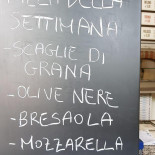 PIZZA DELLA
SETTIMANA
- SCAGLIE DI
GRANA
- OLIVE NERE
- BRESAOLA
- MOZZARELLA